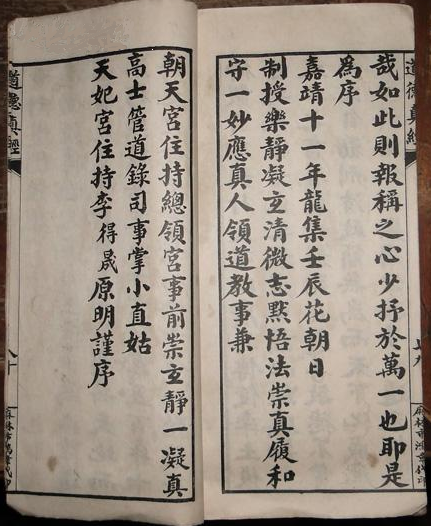 道德真經
哉如此則報稱之心少抒於萬一也即是
為序
嘉靖十一年龍集壬辰花朝日
制授樂靜凝玄清微志默悟法崇真履和
守一妙應真人領道教事兼
朝天宮住持總領宮事前崇玄靜一凝真
高士管道錄司事掌小直姑
天妃宮住持李得晟原明謹序
道德真經
八十